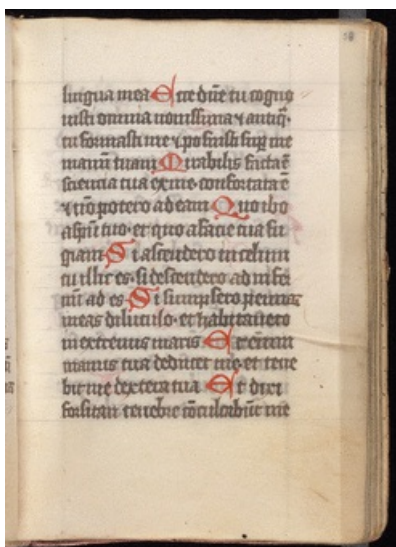 lingua mea Ecce dn̄e tu cogno
uisti omnia nouissima ⁊ antiq̄
tu formasti me ⁊ posuisti sup̄ me
manū tuam Mirabilis facta ē
sciencia tua ex me· confortata ē
⁊ nō potero ad eam Quo ibo
a sp̄u tuo· et quo a facie tua fu
giam Si ascendero in celum
tu illic es· si descendero ad infer
nū ad es· Si sumpsero pennas
meas diluculo· et habitauero
in extremis maris Etenim
manus tua deducet me· et tene
bit me dextera tua Et dixi
forsitan tenebre cōculcabūt me